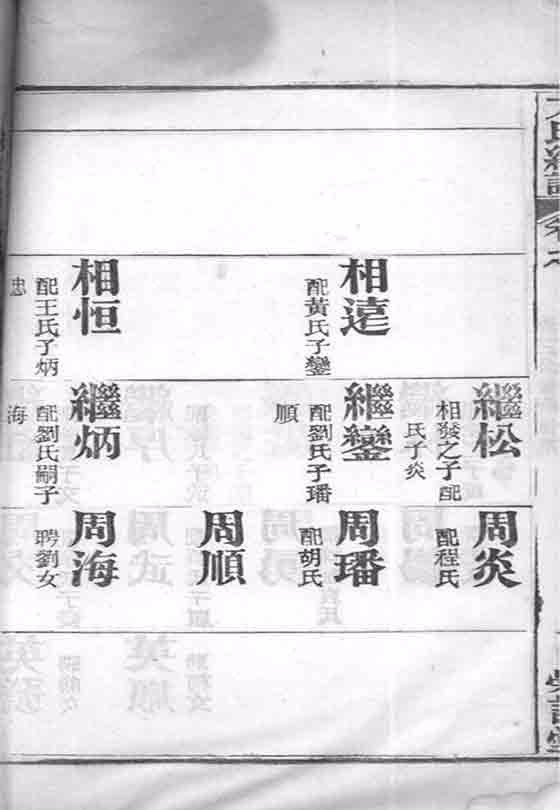 相遠
配黃氏子鑾
相恒
配王氏子炳
忠
繼松
相發之子配
氏子炎
繼鑾
配劉氏子璠
順
繼炳
配劉氏嗣子
海
周炎
配程氏
周璠
配胡氏
周順
周海
聘劉女